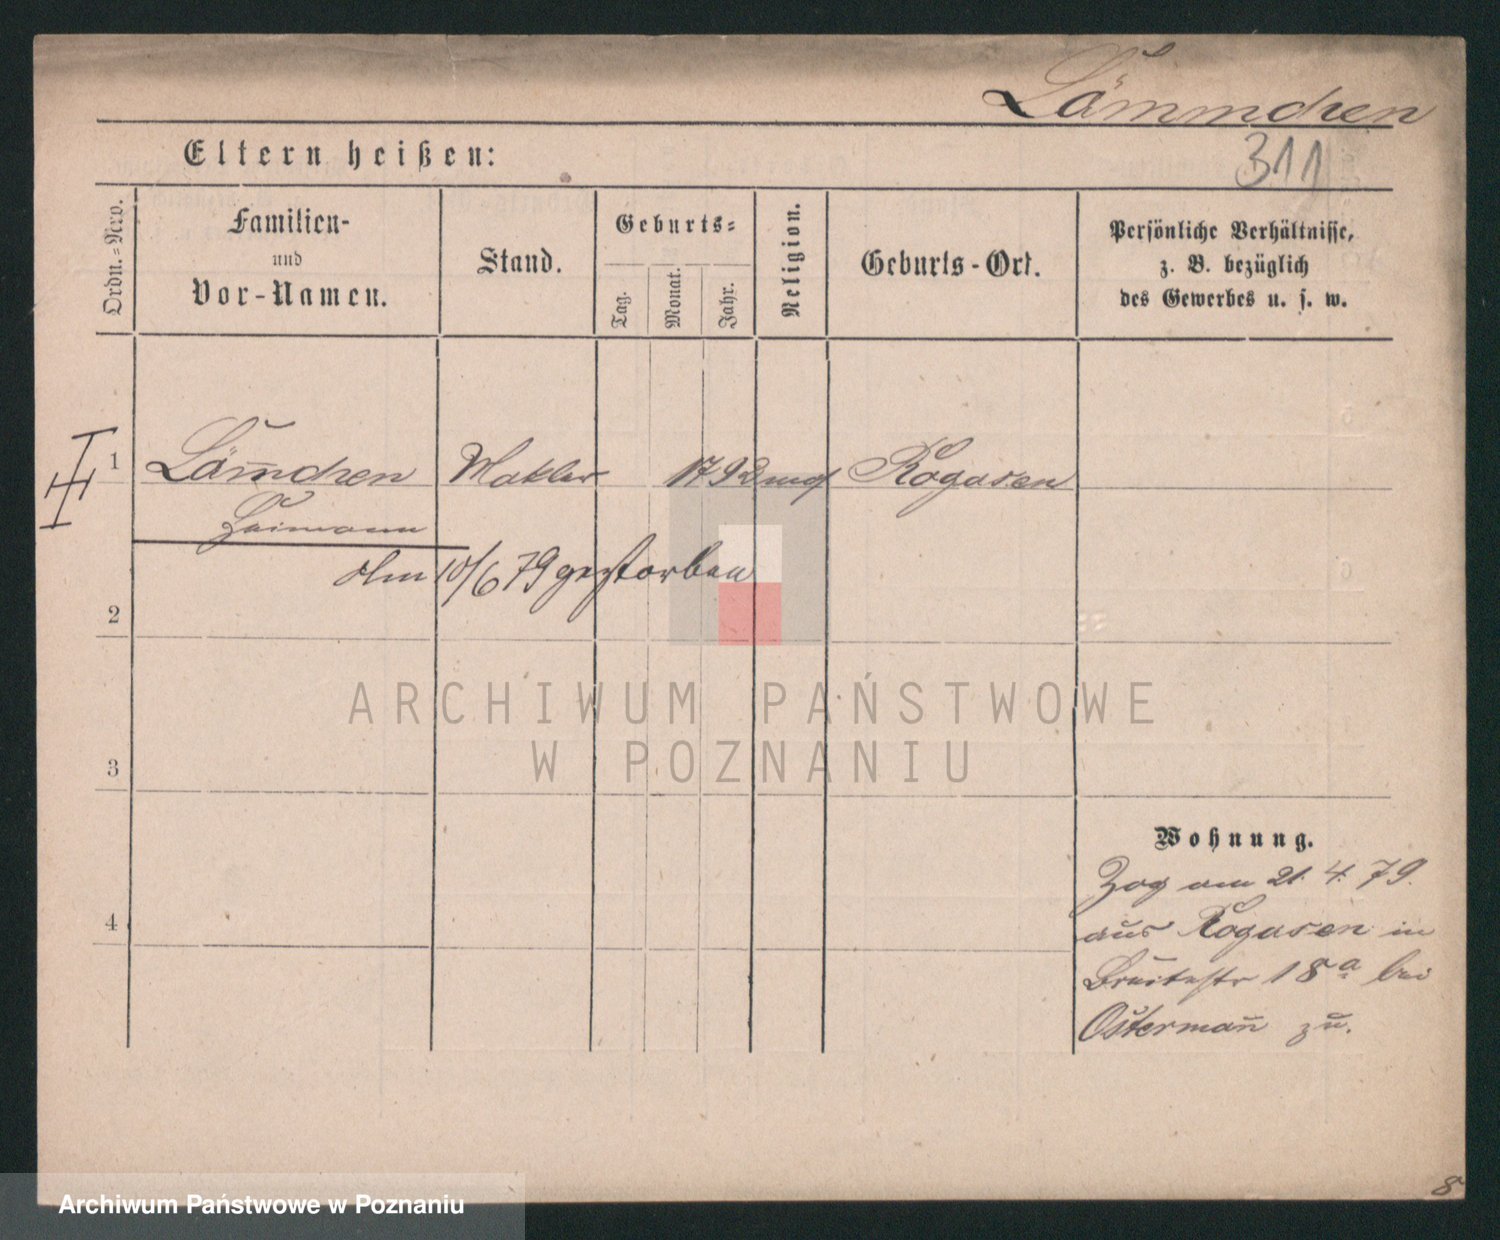 Lämmchen
311
Eltern heißen:
Ordn.-Nro.
Familien-
und
Vor-Namen.
Stand.
Geburts-
Tag.
Monat.
Jahr.
Religion.
Geburts-Ort.
Persönliche Verhältnisse,
z. B. bezüglich
des Gewerbes u. s. w.
1 Läm̄chen Makler 1792 mos Rogasen
Heimann
Am 10/6 79 gestorben
2
ARCHIWUM PAŃSTWOWE
W POZNANIU
3
Wohnung.
Zog am 21. 4. 79.
aus Rogasen in
Breitestr 18a bei
Osterman̄ zu.
4
8
Archiwum Państwowe w Poznaniu